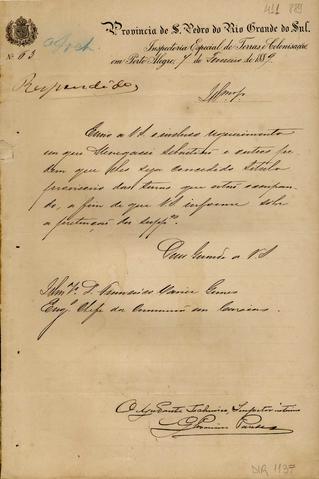 441 889
Provincia de S. Pedro do Rio Grande do Sul.
Inspectoria Especial de Terras e Colonisação
em Porto Alegre, 7 de Fevereiro de 1889
Nº 63
Respondido
Illmo Sr.
Envio a V.S. o incluso requerimento
em que Menegassi Sebastião e outros pe
dem que lhes seja concedido titulo
provisorio das terras que estão occupan
do, a fim de que V.S. informe sobre
a pretenção dos suppes.
Deus Guarde a V.S.
Illmo Sr. D.
Engº Chefe da Commissão em Caxias.
O Ajudante Technico, Inspector interino
DIR 1137